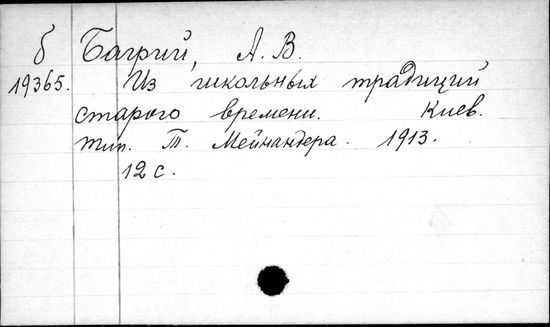 б Багрий, А. В.
19365. Из школьных традиций
старого времени. Киев.
тип. Т. Мейнандера. 1913.
12 с.